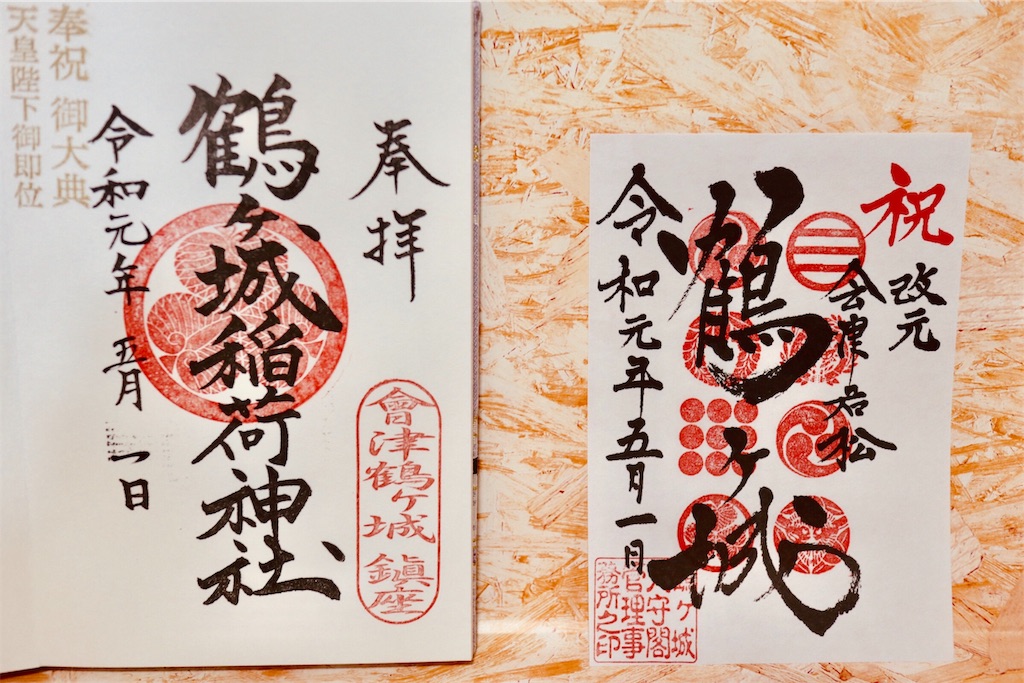 奉拝
鶴ヶ城稲荷神社
令和元年 五月 一日
奉祝 御大典
天皇陛下御即位
會津鶴ヶ城 鎮座
祝
改元
会津若松
鶴ヶ城
令和元年五月一日
ヶ城
守閣
理事
務所之印